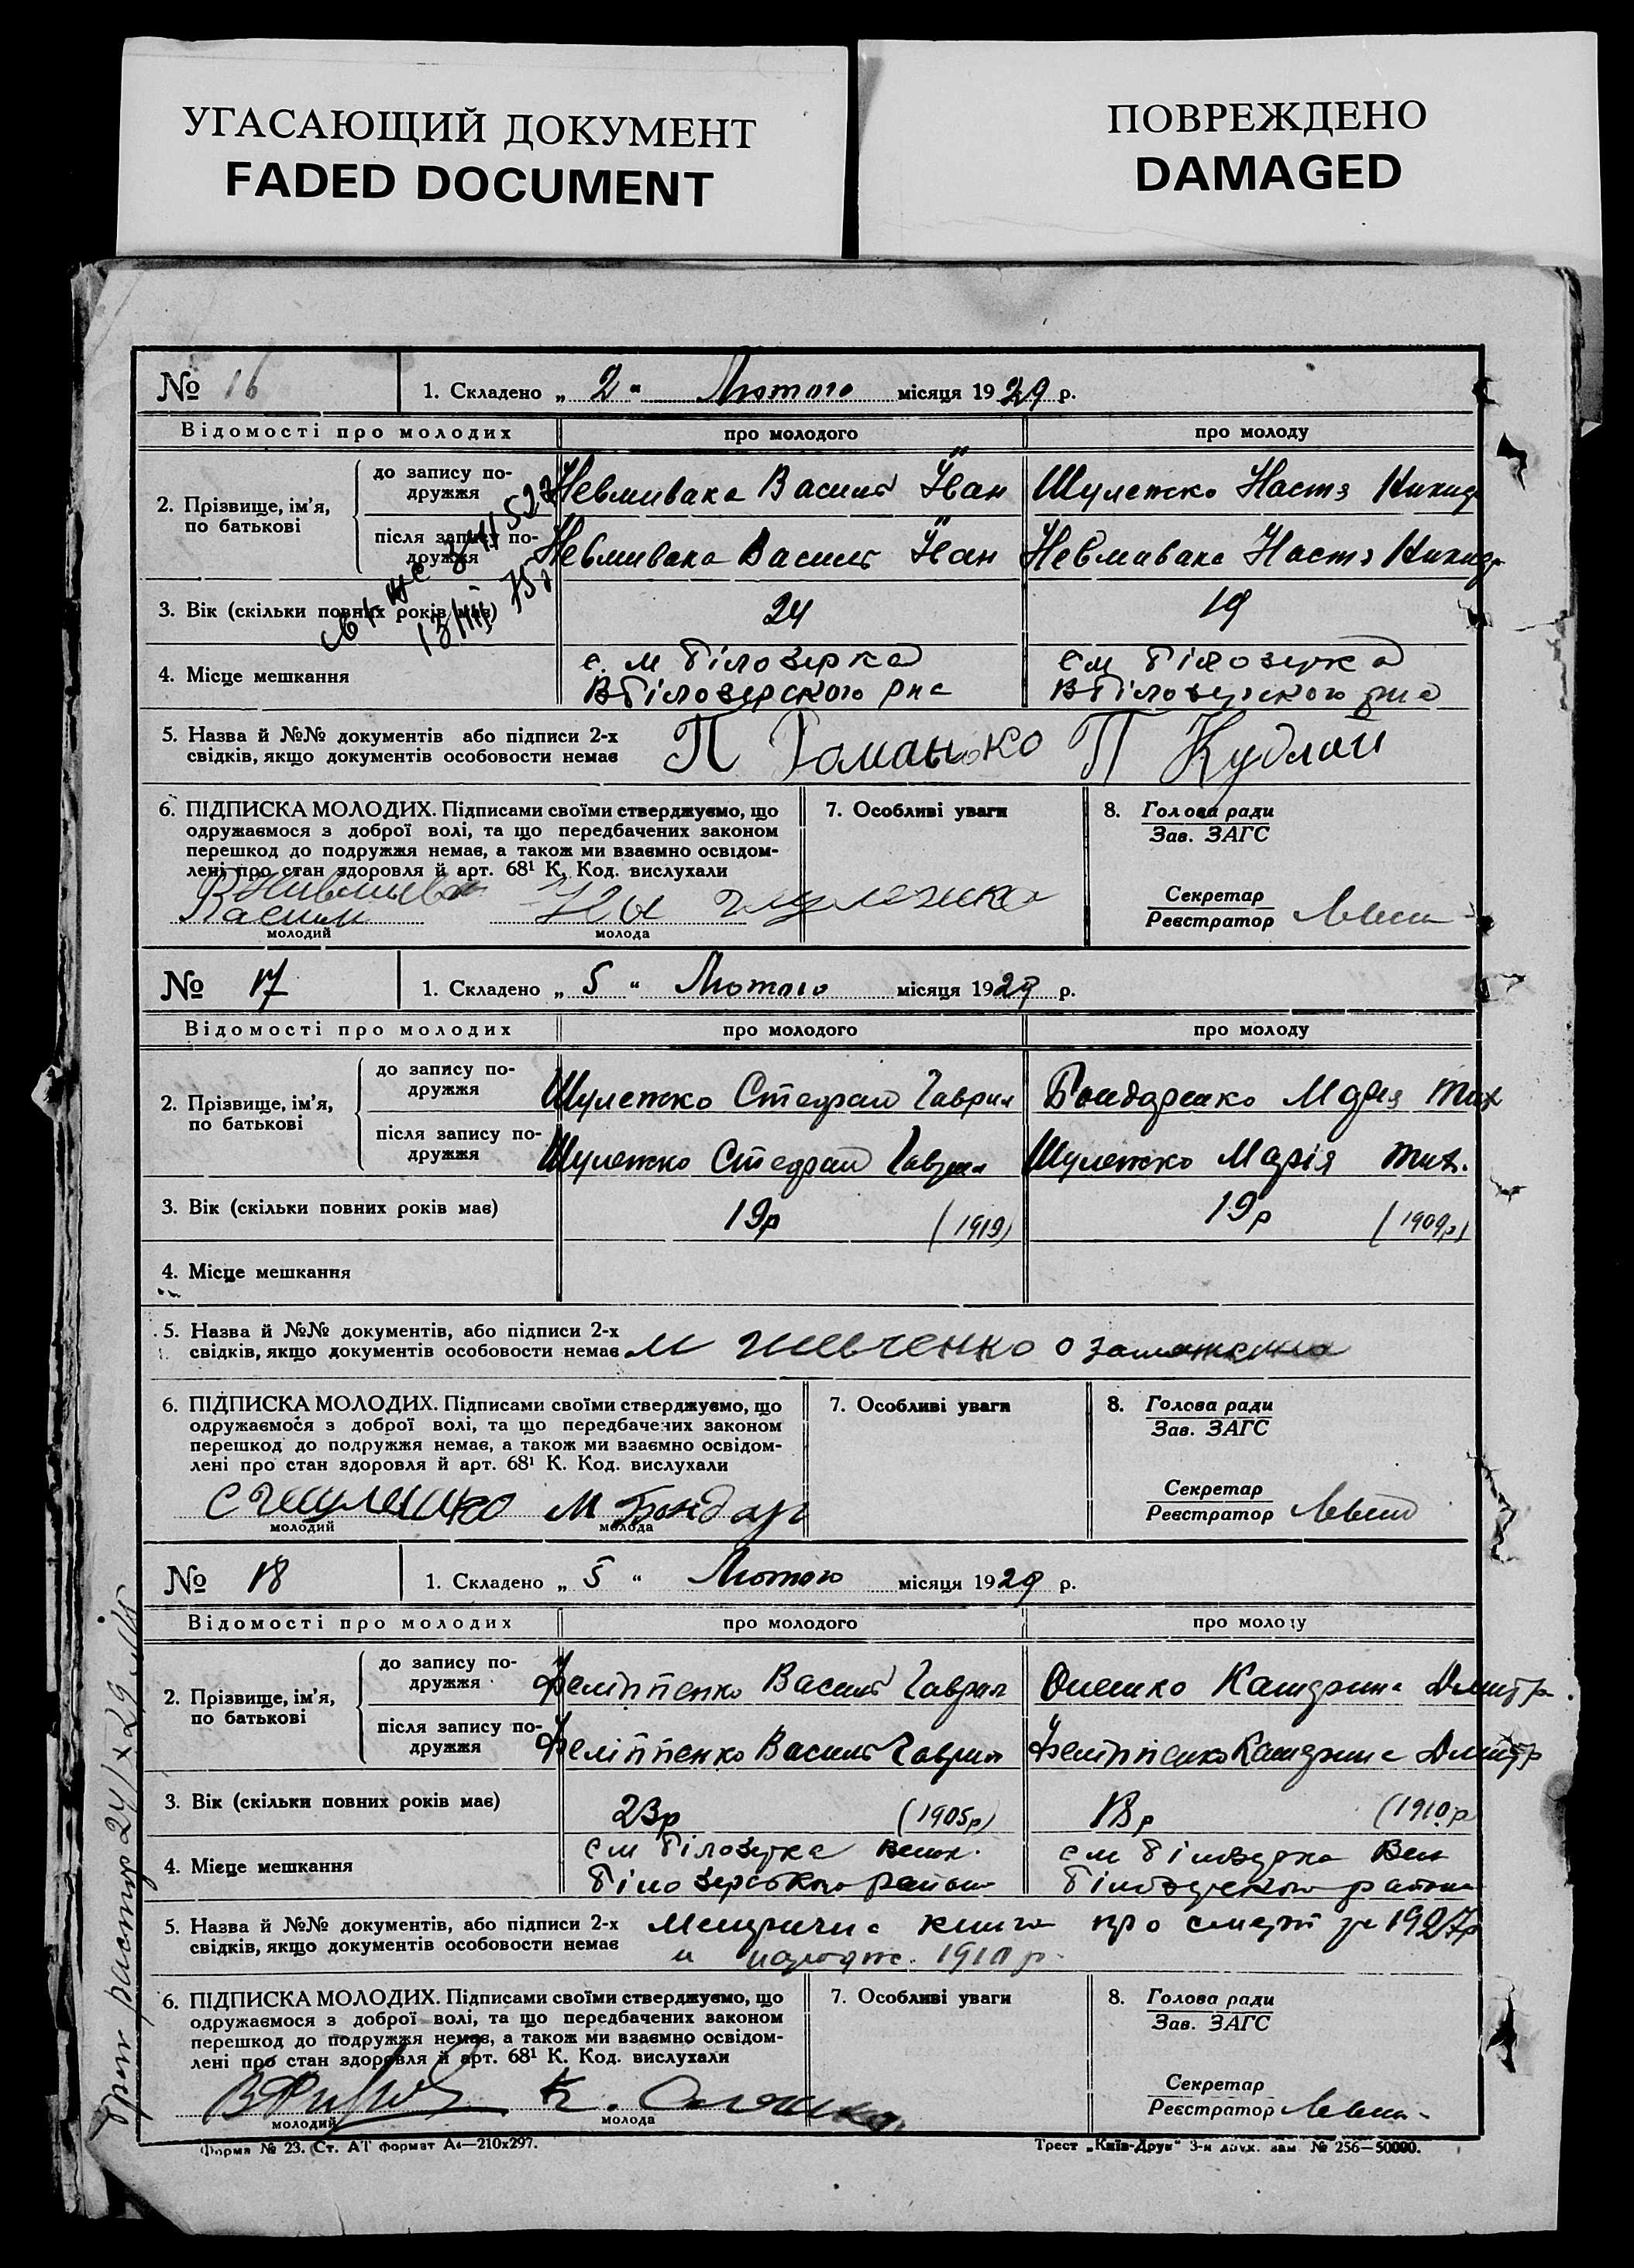 УГАСАЮЩИЙ ДОКУМЕНТ
FADED DOCUMENT
ПОВРЕЖДЕНО
DAMAGED
№ 16 1. Складено „ 2 " Лютого місяця 1929 р.
Відомості про молодих про молодого про молоду
2. Прізвище, ім'я, по батькові
до запису подружжя Невмивака Василь Іван Шулежко Настя Никид
після запису подружжя Невмивака Василь Іван Невмивака Настя Никид
3. Вік (скільки повних років має) 24 19
4. Місце мешкання с. м Білозерка см Білозерка
Вбілозерского рна Вбілозерского рна
5. Назва й №№ документів або підписи 2-х
свідків, якщо документів особовости немає П П Кудлай
6. ПІДПИСКА МОЛОДИХ. Підписами своїми стверджуємо, що
одружаємося з доброї волі, та що передбачених законом
перешкод до подружжя немає, а також ми взаємно освідом-
лені про стан здоровля й арт. 68¹ К. Код. вислухали
7. Особливі уваги
8. Голова ради
Зав. ЗАГС
Секретар
Реєстратор
Василь
молодий молода
№ 17 1. Складено „ 5 " Лютого місяця 1929 р.
Відомості про молодих про молодого про молоду
2. Прізвище, ім'я, по батькові
до запису подружжя Шулежко Стефан Гаврил Бондаренко Марія Тих
після запису подружжя Шулежко Стефан Гаврил Шулежко Марія Тих.
3. Вік (скільки повних років має) 19р (1919) 19р (1909р)
4. Місце мешкання
5. Назва й №№ документів, або підписи 2-х
свідків, якщо документів особовости немає М Шевченко О
6. ПІДПИСКА МОЛОДИХ. Підписами своїми стверджуємо, що
одружаємося з доброї волі, та що передбачених законом
перешкод до подружжя немає, а також ми взаємно освідом-
лені про стан здоровля й арт. 68¹ К. Код. вислухали
7. Особливі уваги
8. Голова ради
Зав. ЗАГС
Секретар
Реєстратор
М Бондар
молодий молода
№ 18 1. Складено „ 5 " Лютого місяця 1929 р.
Відомості про молодих про молодого про молоду
2. Прізвище, ім'я, по батькові
до запису подружжя Феліппенко Василь Гаврил Олешко Катерина Дмитр.
після запису подружжя Феліппенко Василь Гаврил Феліппенко Катерина Дмитр
3. Вік (скільки повних років має) 23р (1905р) 18р (1910р
4. Місце мешкання см Білозерка см Білозерка
Білозерського району Білозерского района
5. Назва й №№ документів, або підписи 2-х
свідків, якщо документів особовости немає Метрична книга про смерть за 1927р
и народж. 1910 р.
6. ПІДПИСКА МОЛОДИХ. Підписами своїми стверджуємо, що
одружаємося з доброї волі, та що передбачених законом
перешкод до подружжя немає, а також ми взаємно освідом-
лені про стан здоровля й арт. 68¹ К. Код. вислухали
7. Особливі уваги
8. Голова ради
Зав. ЗАГС
Секретар
Реєстратор
К. Олешко
молодий молода
Форма № 23. Ст. АТ формат А4—210х297.
Трест „Київ-Друк" 3-я друк. зам. № 256—50000.